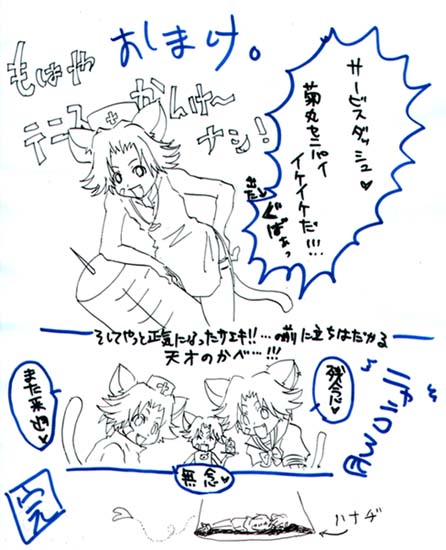 おしまけ。
もはや
テニス かんけ〜
ナシ!
サービスダッシュ♥
菊丸センパイ
イケイケだ!!!
出た
ぐばぁっ
そしてやっと正気になったサエキ!!…の前に立ちはだかる
天才のかべ…!!!
残念♥
また来週♥
無念♥
ハナヂ
完